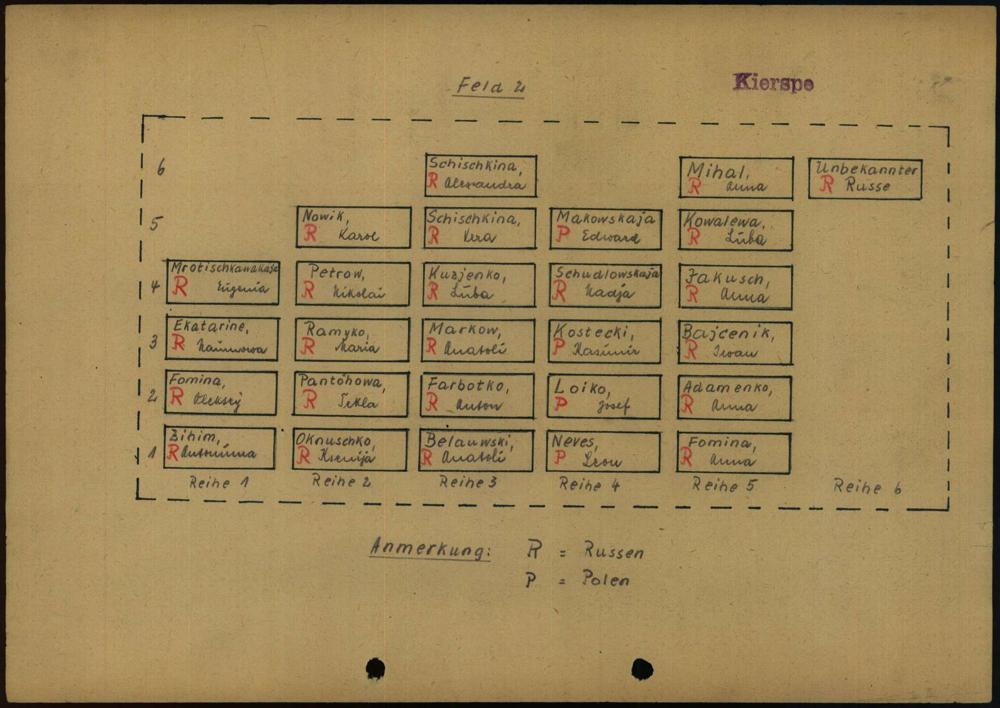 Feld 2
Kierspe
6
Schischkina,
R Alexandra
Mihal,
R Anna
Unbekannter
R Russe
5
Nowik,
R Karol
Schischkina,
R Vera
Makowskaja
P Edward
Kowalewa,
R Luba
4
R Eugenia
Petrow,
R Nikolai
Kuzjenko,
R Luba
Schudlowskaja
R Nadja
Jakusch,
R Anna
3
Ekatarine,
R
Ramyko,
R Maria
Markow,
R Anatoli
Kostecki,
P Kasimir
Bajcenik,
R Iwan
2
Fomina,
R Aleksej
Pantöhowa,
R Tekla
Farbotko,
R Anton
Loiko,
P Josef
Adamenko,
R Anna
1
Zihim,
R Antonina
Oknuschko,
R Ksenija
Belauwski,
R Anatoli
Neves,
P Leon
Fomina,
R Anna
Reihe 1
Reihe 2
Reihe 3
Reihe 4
Reihe 5
Reihe 6
Anmerkung: R = Russen
P = Polen